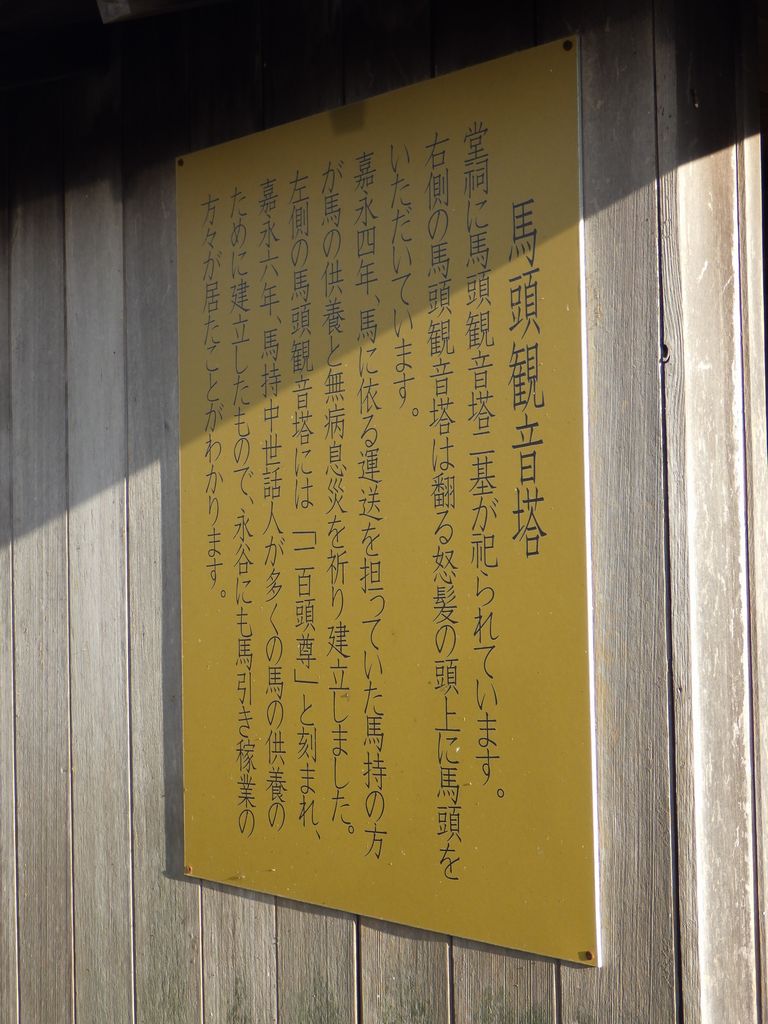 馬頭観音塔
堂祠に馬頭観音塔二基が祀られています。
右側の馬頭観音塔は翻る怒髪の頭上に馬頭を
いただいています。
嘉永四年、馬に依る運送を担っていた馬持の方
が馬の供養と無病息災を祈り建立しました。
左側の馬頭観音塔には「二百頭尊」と刻まれ、
嘉永六年、馬持中世話人が多くの馬の供養の
ために建立したもので、永谷にも馬引き稼業の
方々が居たことがわかります。